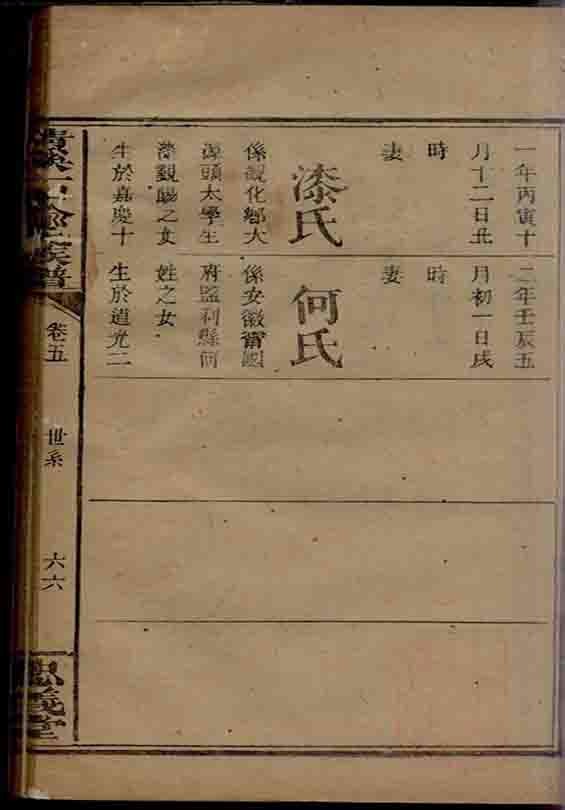 一年丙寅十
月十二日丑
時
妻
漆氏
係觀化鄉大
源頭太學生
漆觀賜之女
生於嘉慶十
二年壬辰五
月初一日戌
時
妻
何氏
係安徽甯國
府盬利縣何
姓之女
生於道光二
族譜
卷五
世系
六六
忠義堂